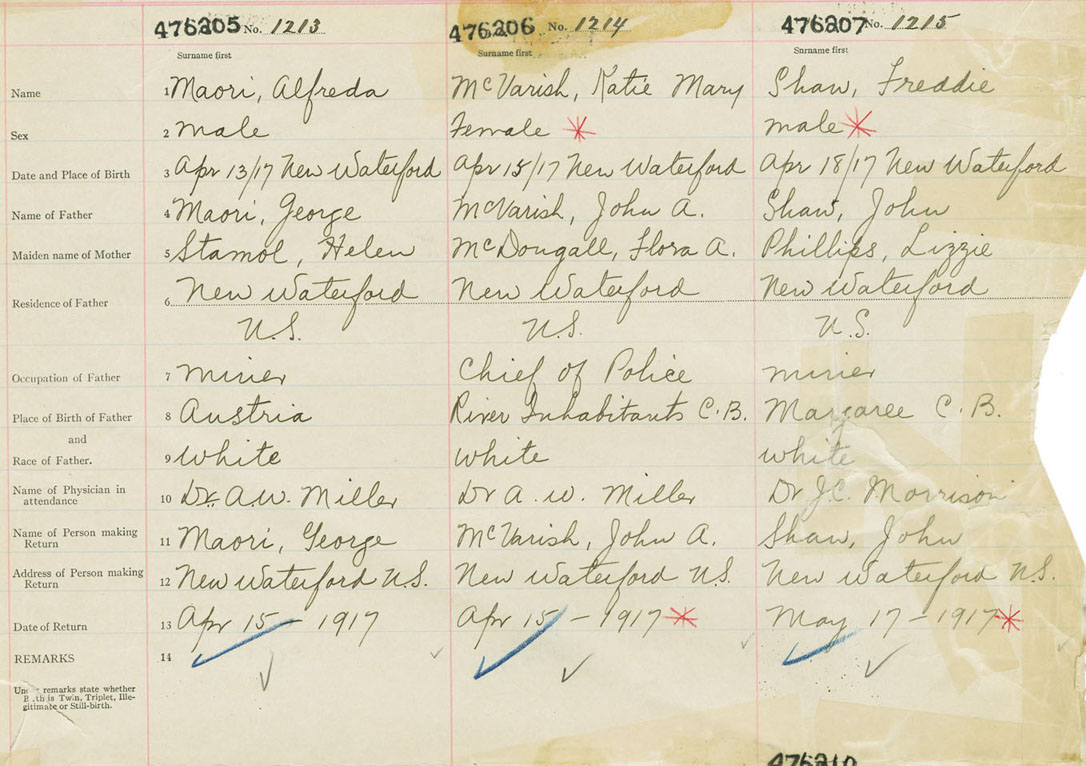 476205 No. 1213 476206 No. 1214 476207 No. 1215
Surname first Surname first Surname first
Name 1 Maori, Alfreda McVarish, Katie Mary Shaw, Freddie
Sex 2 male Female male
Date and Place of Birth 3 Apr 13/17 New Waterford Apr 15/17 New Waterford Apr 18/17 New Waterford
Name of Father 4 Maori, George McVarish, John A. Shaw, John
Maiden name of Mother 5 Stamol, Helen McDougall, Flora A. Phillips, Lizzie
Residence of Father 6 New Waterford New Waterford New Waterford
N.S. N.S. N.S.
Occupation of Father 7 miner Chief of Police miner
Place of Birth of Father 8 Austria River Inhabitants C.B. Margaree C.B.
and
Race of Father. 9 white white white
Name of Physician in attendance 10 Dr. A.W. Miller Dr A. W. Miller Dr J.C. Morrison
Name of Person making Return 11 Maori, George McVarish, John A. Shaw, John
Address of Person making Return 12 New Waterford N.S. New Waterford N.S. New Waterford N.S.
Date of Return 13 Apr 15 - 1917 Apr 15 - 1917 May 17 - 1917
REMARKS 14
Under remarks state whether
Birth is Twin, Triplet, Ille-
gitimate or Still-birth.
476210